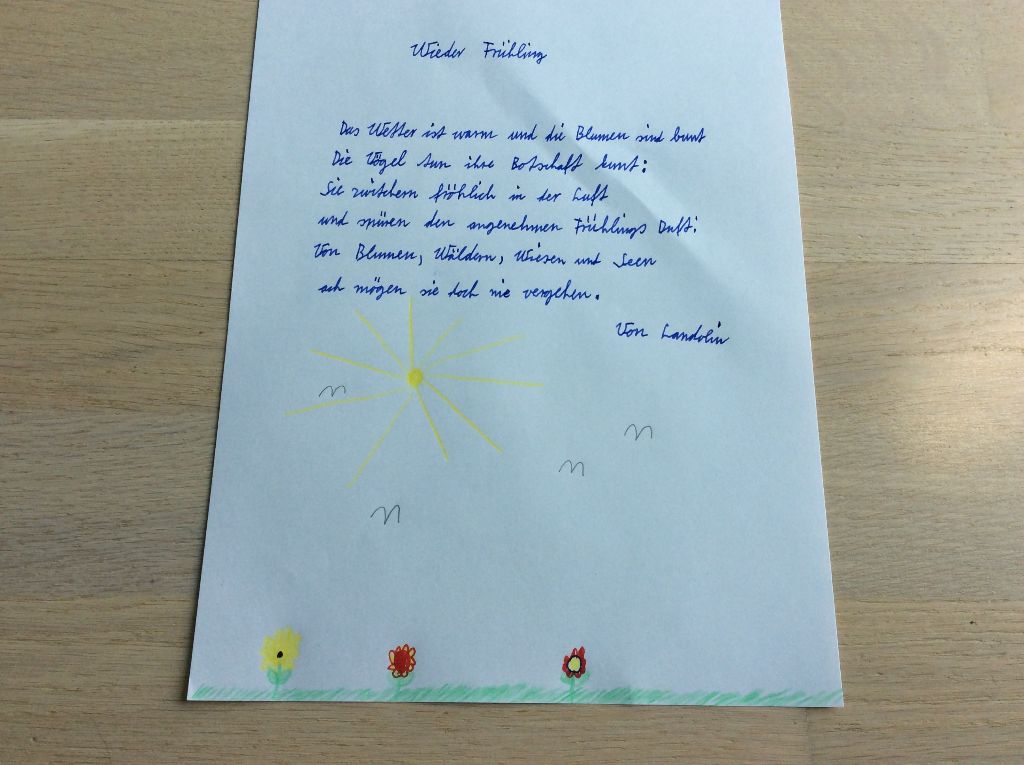 Wieder Frühling
Das Wetter ist warm und die Blumen sind bunt
Die Vögel tun ihre Botschaft kunt:
Sie zwitschern fröhlich in der Luft
und spüren den angenehmen Frühlings Duft:
Von Blumen, Wäldern, Wiesen und Seen
ach mögen sie doch nie vergehen.
Von Landolin